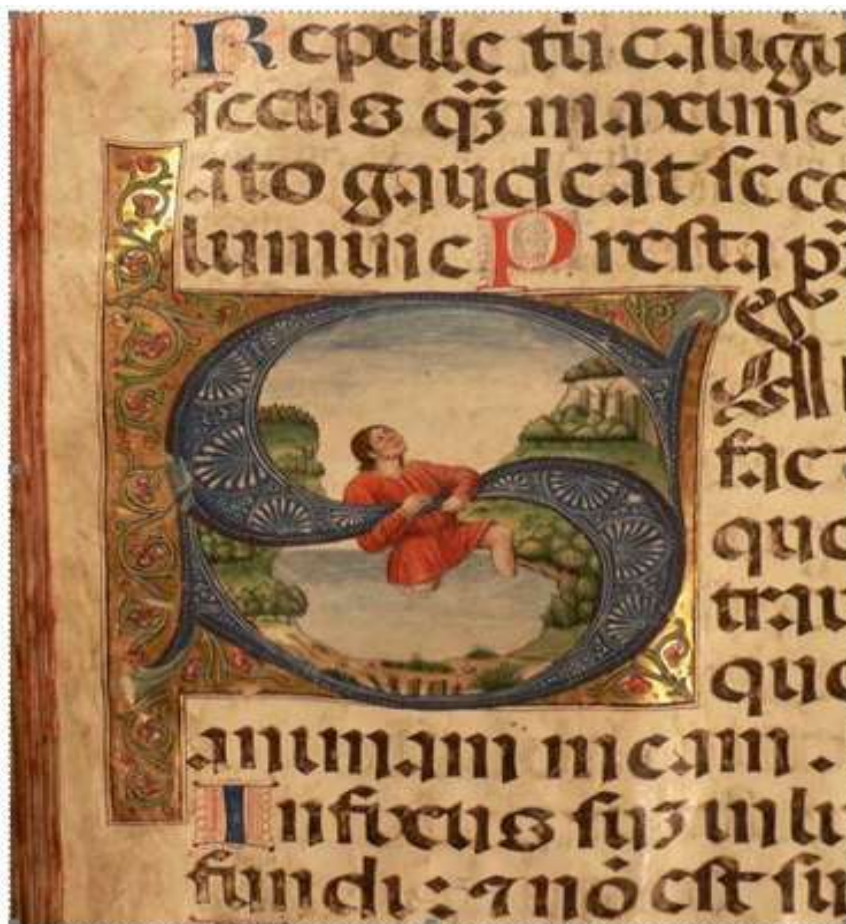 Repelle tu caligi
secus qʒ maxime
ato gaudeat se co
lumine Presta p̄
SAl
fac
quo
trau
quo
animam meam .
Infixus suʒ in li
fundi : ⁊ nō est su